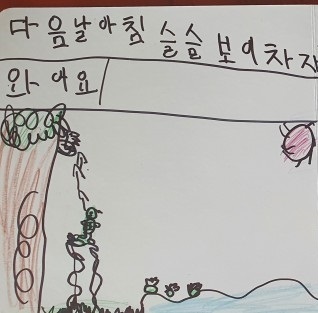 다음날 아침 슬슬 보이차 자
와 어요